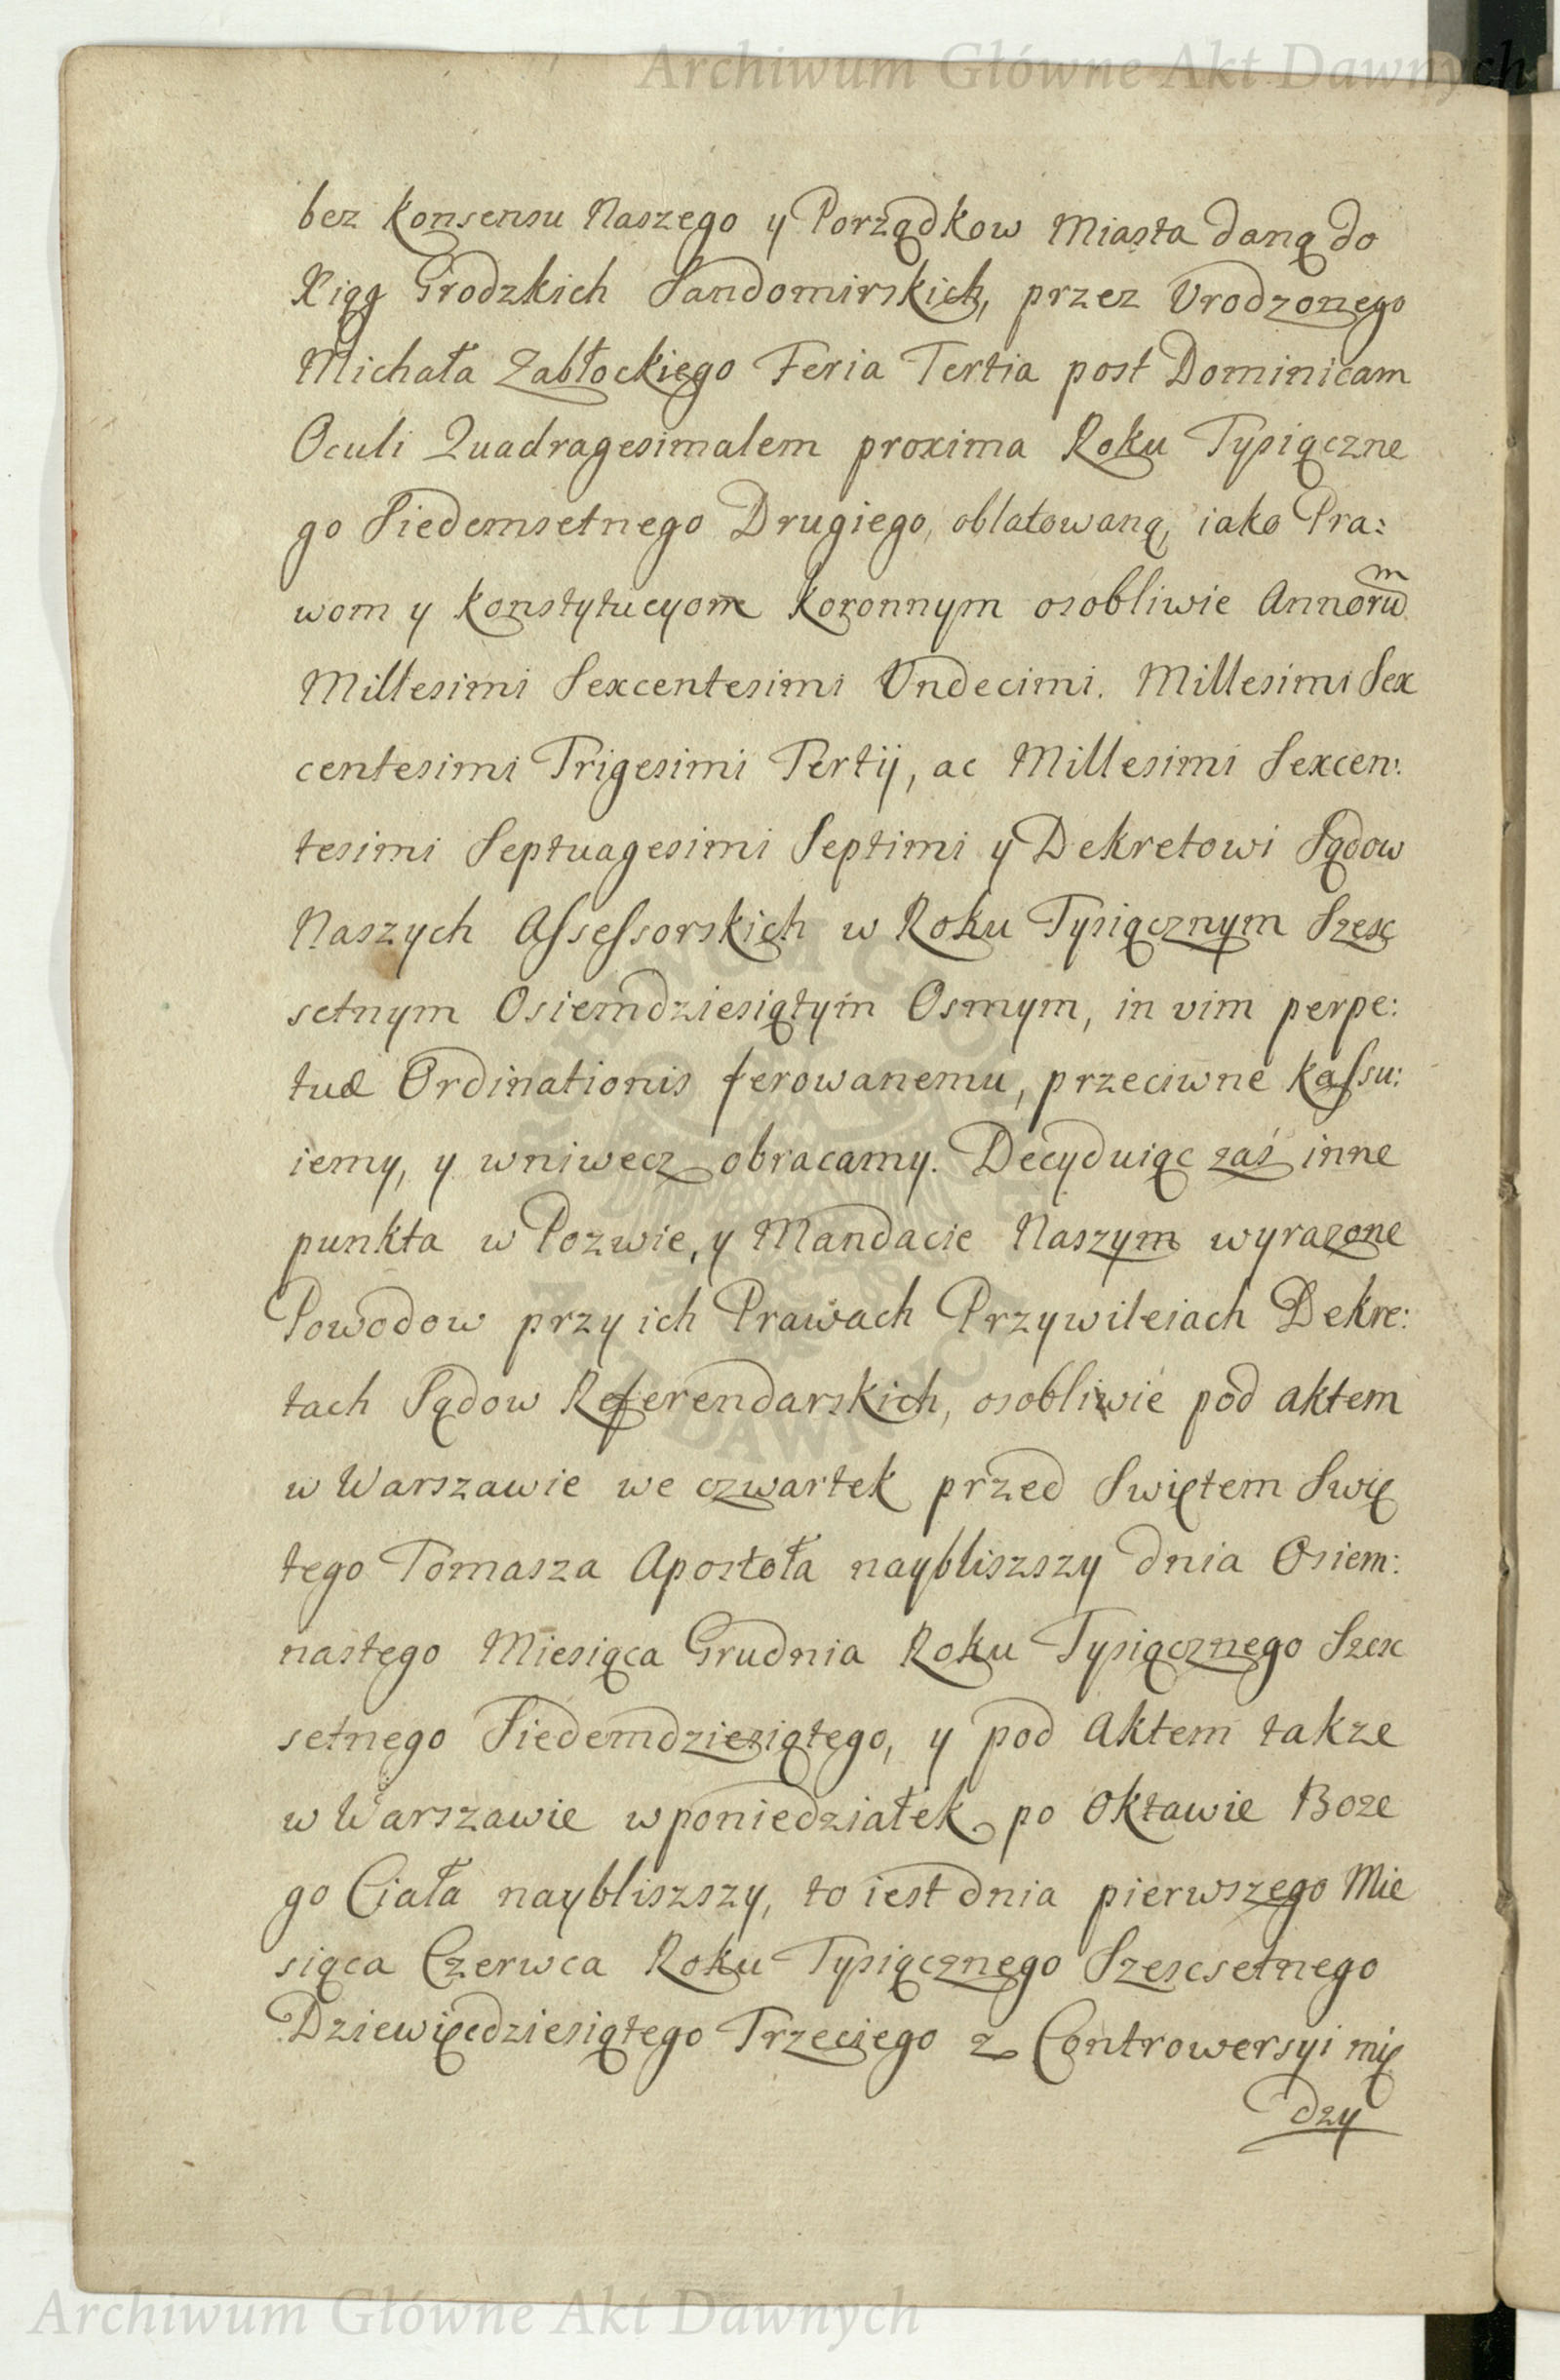 Archiwum Główne Akt Dawnych
bez Konsensu Naszego y Porządkow Miasta daną do
Xiąg Grodzkich Sandomirskich, przez Urodzonego
Michała Zabłockiego Feria Tertia post Dominicam
Oculi Quadragesimalem proxima Roku Tysiączne
go Siedemsetnego Drugiego, oblatowaną, iako Pra:
wom y Konstytucyom Koronnym osobliwie Annorum
Millesimi Sexcentesimi Undecimi. Millesimi Sex
centesimi Trigesimi Tertij, ac Millesimi Sexcen:
tesimi Septuagesimi Septimi y Dekretowi Sądow
Naszych Assessorskich w Roku Tysiącznym Szesc
setnym Osiemdziesiątym Osmym, in vim perpe:
tuæ Ordinationis ferowanemu, przeciwne kassu:
iemy, y wniwecz obracamy. Decyduiąc zaś inne
punkta w Pozwie, y Mandacie Naszym wyrazone
Powodow przy ich Prawach Przywileiach Dekre:
tach Sądow Referendarskich, osobliwie pod aktem
w Warszawie we czwartek przed Swiętem Swię
tego Tomasza Apostoła naybliszszy dnia Osiem:
nastego Miesiąca Grudnia Roku Tysiącznego Szesc
setnego Siedemdziesiątego, y pod Aktem takze
w Warszawie w poniedziałek po Oktawie Boze
go Ciała naybliszszy, to iest dnia pierwszego Mie
siąca Czerwca Roku Tysiącznego Szescsetnego
Dziewięcdziesiątego Trzeciego z Controwersyi mię
dzy
Archiwum Główne Akt Dawnych